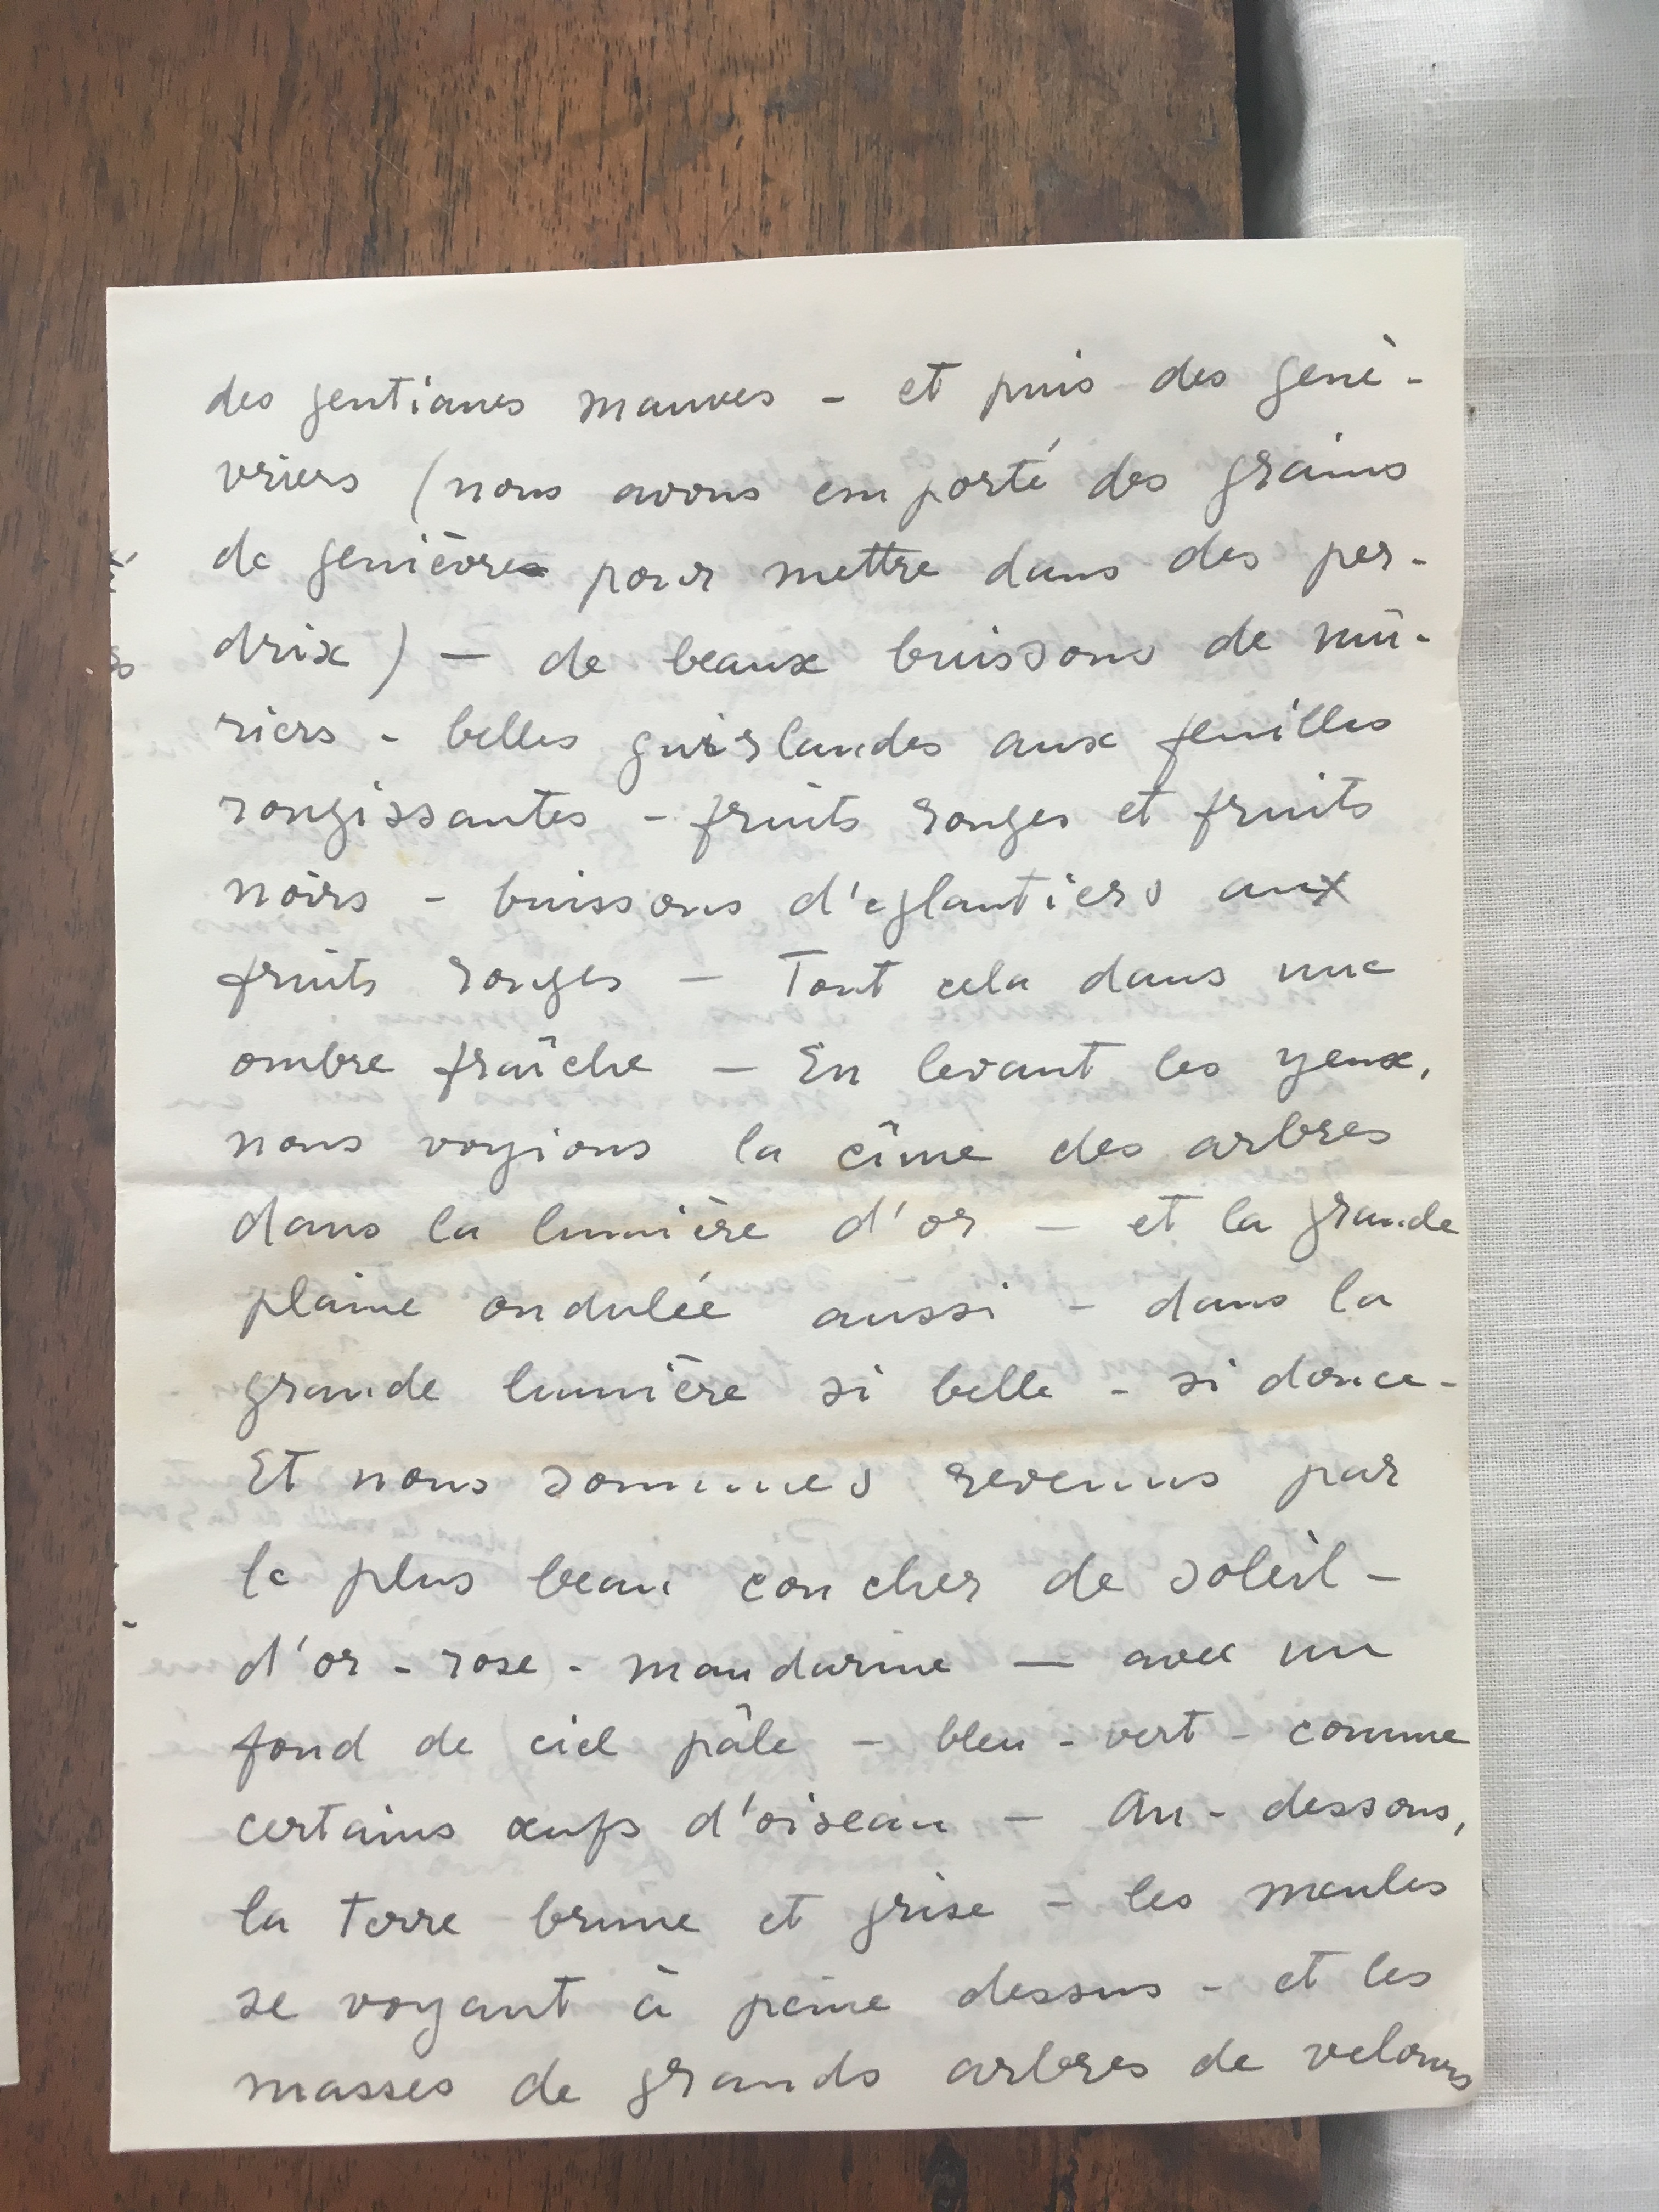 des gentianes mauves - et puis des gené-
vriers (nous avons emporté des grains
de genièvre pour mettre dans des per-
drix) — de beaux buissons de mû-
riers - belles guirlandes aux feuilles
rougissantes - fruits rouges et fruits
noirs - buissons d'eglantiers aux
fruits rouges — Tout cela dans une
ombre fraîche — En levant les yeux,
nous voyions la cîme des arbres
dans la lumière d'or — et la grande
plaine ondulée aussi - dans la
grande lumière si belle - si douce -
Et nous sommes revenus par
le plus beau coucher de soleil -
d'or - rose - mandarine — avec un
fond de ciel pâle - bleu - vert - comme
certains œufs d'oiseau — Au-dessous,
la terre brune et grise - les meules
se voyant à peine dessus - et les
masses de grands arbres de velours